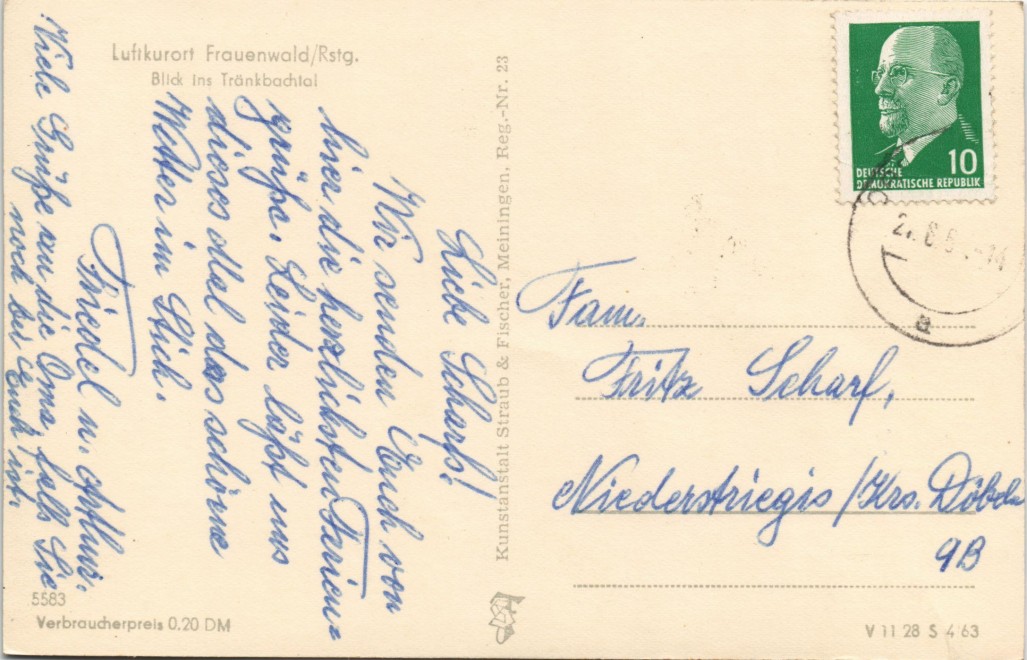 Luftkurort Frauenwald/Rstg.
Blick ins Tränkbachtal
Liebe Scharfs!
Wir senden Euch von
hier die herzlichsten Ferien-
grüße. Leider läßt uns
dieses Mal das schöne
Wetter im Stich.
Friedel u.
Viele Grüße von die Oma, falls Sie
noch bei Euch ist.
5583
Verbraucherpreis 0.20 DM
Kunstanstalt Straub & Fischer, Meiningen, Reg.-Nr. 23
10
DEUTSCHE
DEMOKRATISCHE REPUBLIK
a
Fam.
Fritz Scharf,
Niederstriegis/Krs. Döbeln
9B
V 11 28 S 4 63